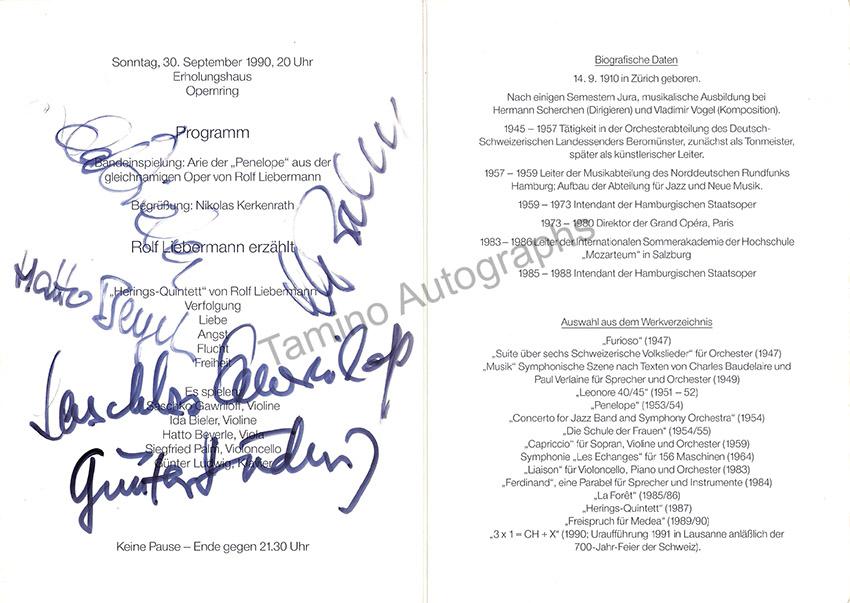 Sonntag, 30. September 1990, 20 Uhr
Erholungshaus
Opernring
Programm
Bandeinspielung: Arie der „Penelope“ aus der
gleichnamigen Oper von Rolf Liebermann
Begrüßung: Nikolas Kerkenrath
Rolf Liebermann erzählt
„Herings-Quintett“ von Rolf Liebermann
Verfolgung
Liebe
Angst
Flucht
Freiheit
Es spielen:
Saschko Gawriloff, Violine
Ida Bieler, Violine
Hatto Beyerle, Viola
Siegfried Palm, Violoncello
Günter Ludwig, Klavier
Keine Pause – Ende gegen 21.30 Uhr
Hatto Beyerle
Saschko Gawriloff
Günter Ludwig
Biografische Daten
14. 9. 1910 in Zürich geboren.
Nach einigen Semestern Jura, musikalische Ausbildung bei
Hermann Scherchen (Dirigieren) und Vladimir Vogel (Komposition).
1945 – 1957 Tätigkeit in der Orchesterabteilung des Deutsch-
Schweizerischen Landessenders Beromünster, zunächst als Tonmeister,
später als künstlerischer Leiter.
1957 – 1959 Leiter der Musikabteilung des Norddeutschen Rundfunks
Hamburg; Aufbau der Abteilung für Jazz und Neue Musik.
1959 – 1973 Intendant der Hamburgischen Staatsoper
1973 – 1980 Direktor der Grand Opéra, Paris
1983 – 1986 Leiter der Internationalen Sommerakademie der Hochschule
„Mozarteum“ in Salzburg
1985 – 1988 Intendant der Hamburgischen Staatsoper
Auswahl aus dem Werkverzeichnis
„Furioso“ (1947)
„Suite über sechs Schweizerische Volkslieder“ für Orchester (1947)
„Musik“ Symphonische Szene nach Texten von Charles Baudelaire und
Paul Verlaine für Sprecher und Orchester (1949)
„Leonore 40/45“ (1951 – 52)
„Penelope“ (1953/54)
„Concerto for Jazz Band and Symphony Orchestra“ (1954)
„Die Schule der Frauen“ (1954/55)
„Capriccio“ für Sopran, Violine und Orchester (1959)
Symphonie „Les Echanges“ für 156 Maschinen (1964)
„Liaison“ für Violoncello, Piano und Orchester (1983)
„Ferdinand“, eine Parabel für Sprecher und Instrumente (1984)
„La Forêt“ (1985/86)
„Herings-Quintett“ (1987)
„Freispruch für Medea“ (1989/90)
„3 x 1 = CH + X“ (1990; Uraufführung 1991 in Lausanne anläßlich der
700-Jahr-Feier der Schweiz).
Tamino Autographs